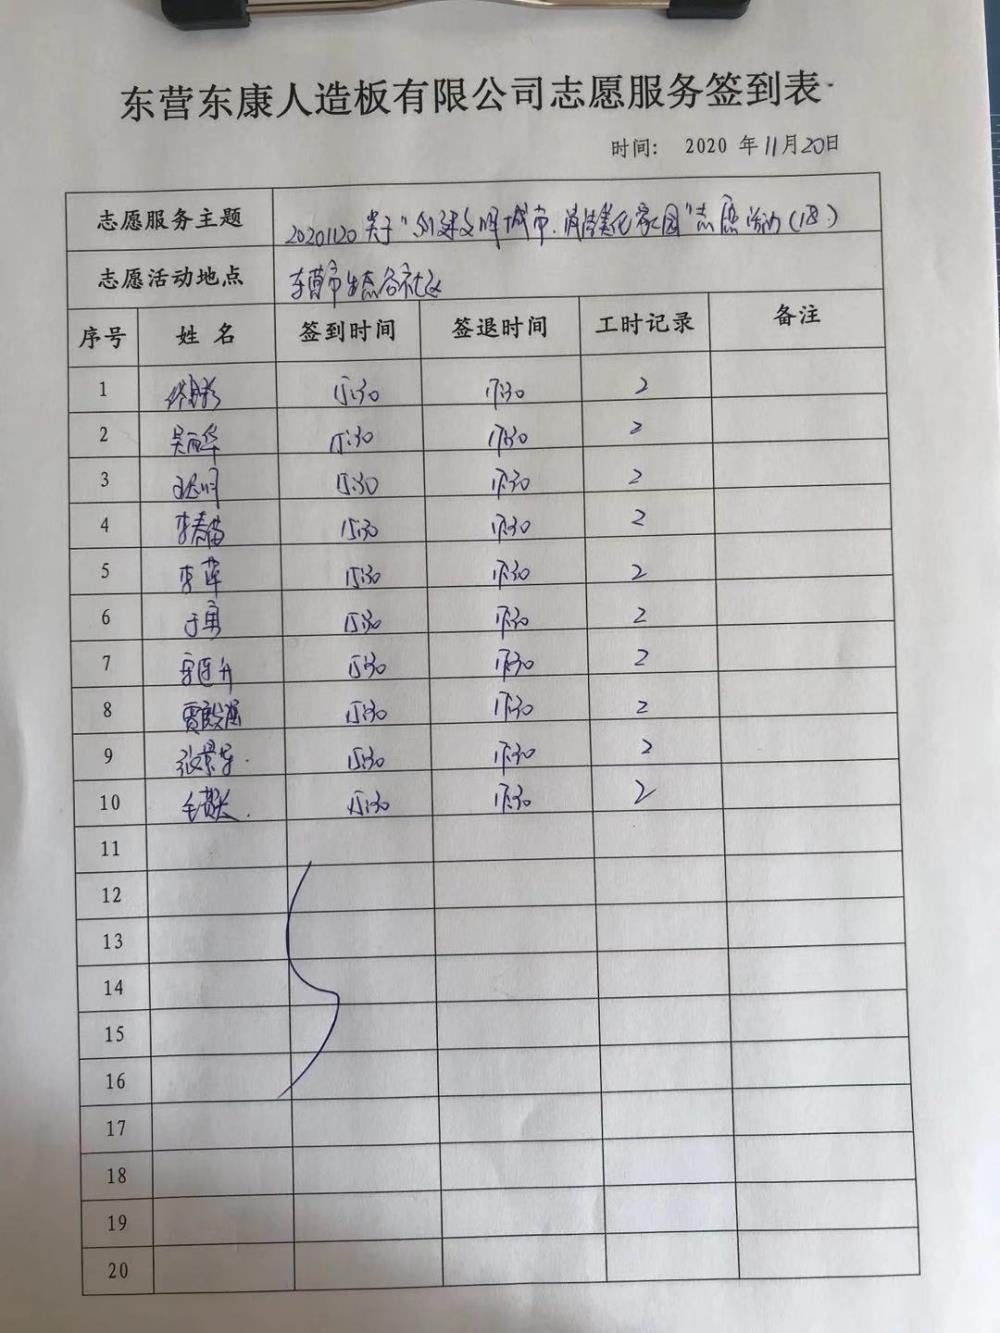 东营东康人造板有限公司志愿服务签到表
时间: 2020 年11月20日
志愿服务主题 20201120关于"创建文明城市.清洁美化家园"志愿活动(18.)
志愿活动地点 东营市生态谷社区
序号 姓名 签到时间 签退时间 工时记录 备注
1 15:30 17:30 2
2 吴丽华 15:30 17:30 2
3 15:30 17:30 2
4 李春苗 15:30 17:30 2
5 李萍 15:30 17:30 2
6 于勇 15:30 17:30 2
7 15:30 17:30 2
8 贾殿强 15:30 17:30 2
9 张景 15:30 17:30 2
10 毛 15:30 17:30 2
11
12
13
14
15
16
17
18
19
20